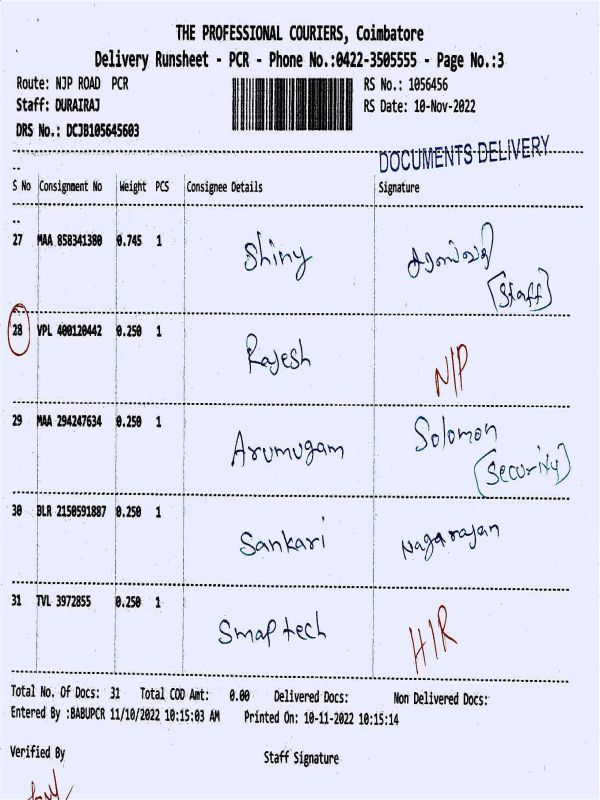 THE PROFESSIONAL COURIERS, Coimbatore
Delivery Runsheet - PCR - Phone No.:0422-3505555 - Page No.:3
Route: NJP ROAD PCR
RS No.: 1056456
Staff: DURAIRAJ
RS Date: 10-Nov-2022
DRS No.: DCJB105645603
DOCUMENTS DELIVERY
S No Consignment No Weight PCS Consignee Details Signature
27 MAA 858341380 0.745 1 Shiny சரஸ்வதி
[Staff]
28 VPL 400120442 0.250 1 Rajesh N/P
29 MAA 294247634 0.250 1 Arumugam Solomon
[Security]
30 BLR 2150591887 0.250 1 Sankari Nagarajan
31 TVL 3972855 0.250 1 Smap tech H/R
Total No. Of Docs: 31 Total COD Amt: 0.00 Delivered Docs: Non Delivered Docs:
Entered By :BABUPCR 11/10/2022 10:15:03 AM Printed On: 10-11-2022 10:15:14
Verified By Staff Signature